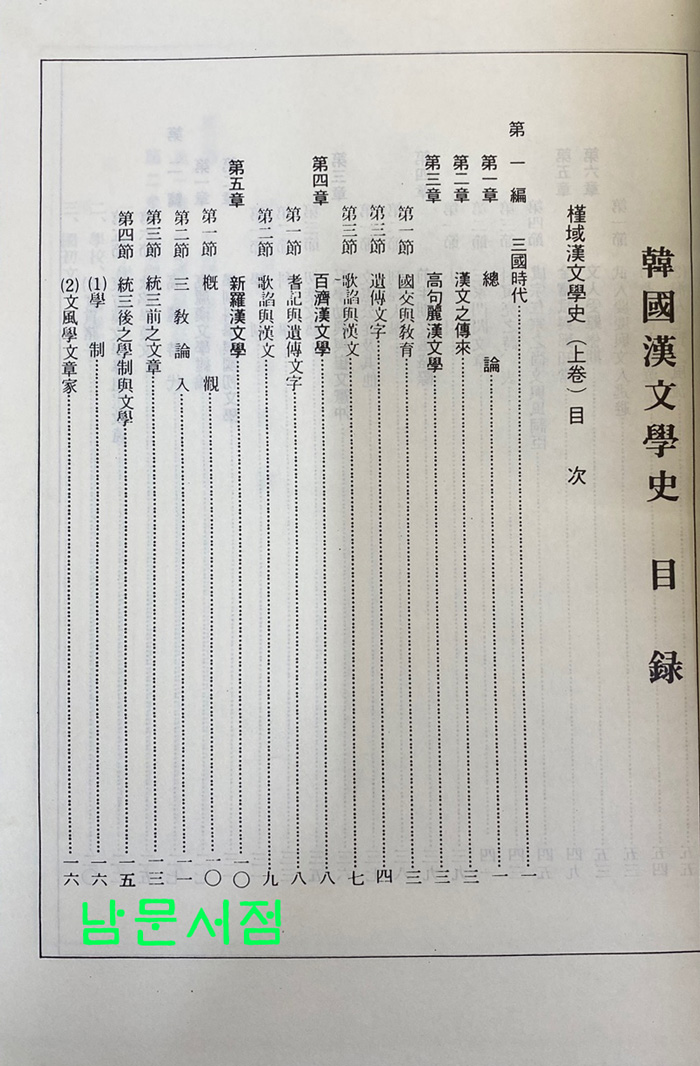 韓國漢文學史 目 録
槿域漢文學史（上卷）目 次
第 一 編 三國時代……一
第一章 總 論……一
第二章 漢文之傳來……三
第三章 高句麗漢文學……三
第一節 國交與敎育……三
第三節 遺傳文字……四
第三節 歌謟與漢文……七
第四章 百濟漢文學……八
第一節 耆記與遺傳文字……八
第二節 歌謟與漢文……九
第五章 新羅漢文學……一〇
第一節 槪 觀……一〇
第二節 三敎論入……一一
第三節 統三前之文章……一三
第四節 統三後之學制與文學……一五
(1)學 制……一六
(2)文風學文章家……一六
남문서점